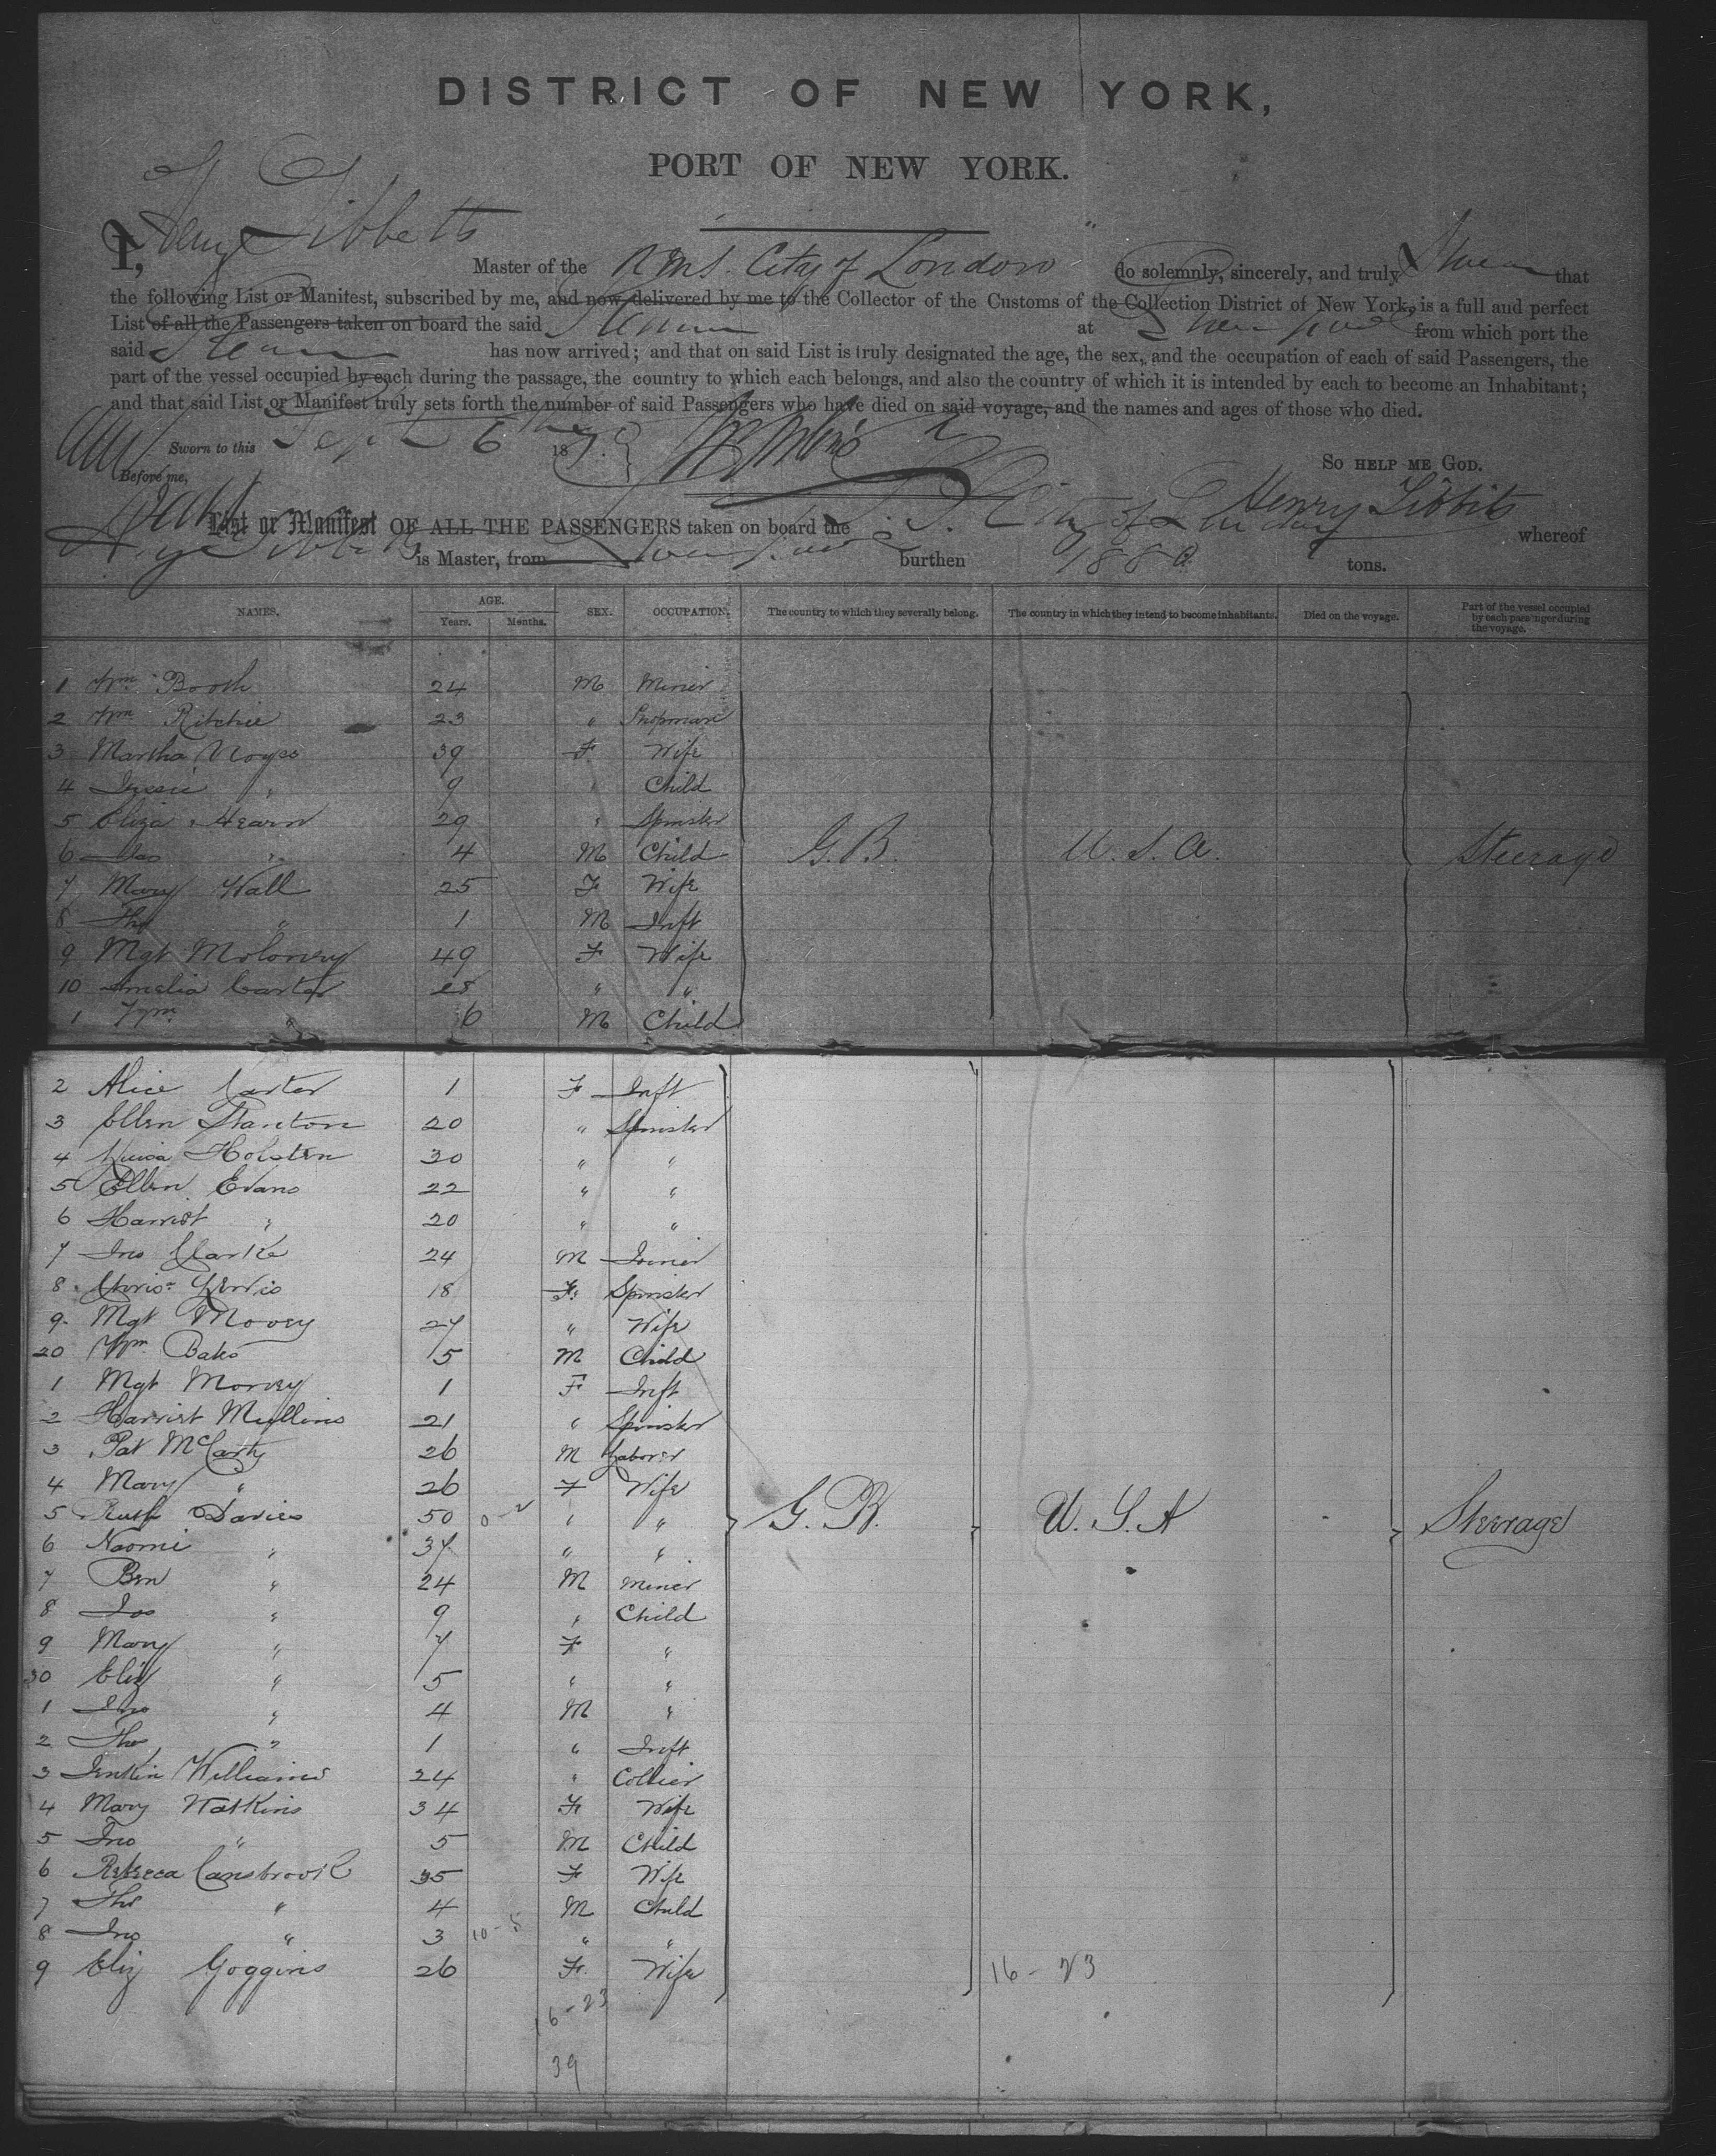 DISTRICT OF NEW YORK,
PORT OF NEW YORK.
I, Henry Tibbetts Master of the R.M.S. City of London do solemnly, sincerely, and truly Swear that
the following List or Manifest, subscribed by me, and now delivered by me to the Collector of the Customs of the Collection District of New York, is a full and perfect
List of all the Passengers taken on board the said Steamer at Liverpool from which port the
said Steamer has now arrived; and that on said List is truly designated the age, the sex, and the occupation of each of said Passengers, the
part of the vessel occupied by each during the passage, the country to which each belongs, and also the country of which it is intended by each to become an Inhabitant;
and that said List or Manifest truly sets forth the number of said Passengers who have died on said voyage, and the names and ages of those who died.
Sworn to this Sept 6 187
So HELP ME GOD.
Before me,
Henry Tibbits
List or Manifest OF ALL THE PASSENGERS taken on board the S.S. City of London whereof
Hy Tibbetts is Master, from Liverpool burthen 1880 tons.
NAMES. AGE. SEX. OCCUPATION. The country to which they severally belong. The country in which they intend to become inhabitants. Died on the voyage. Part of the vessel occupied by each passenger during the voyage.
Years. Months.
1 Wm Booth 24 M Miner
2 Wm Ritchie 23 " Shopman
3 Martha 39 F Wife
4 Jessie " 9 " Child
5 Eliza Hearn 29 " Spinster
6 Jas " 4 M Child G.B. U.S.A. Steerage
7 Mary Wall 25 F Wife
8 Tho " 1 M Inft
9 Mgt Moloney 49 F Wife
10 Amelia Carter 28 " "
1 Wm " 6 M Child
2 Alice Carter 1 F Inft
3 Ellen Stanton 20 " Spinster
4 Louisa Holsten 30 " "
5 Ellen Evans 22 " "
6 Harriet " 20 " "
7 Jno Clarke 24 M Joiner
8 Lewis 18 F Spinster
9 Mgt Movey 27 " Wife
20 Wm Bates 5 M Child
1 Mgt Morvey 1 F Inft
2 Harriet Mullins 21 " Spinster
3 Pat McCarty 26 M Laborer
4 Mary " 26 F Wife
5 Ruth Davies 50 0-2 " " G.B. U.S.A Steerage
6 Naomi " 37 " "
7 Ben " 24 M Miner
8 Jos " 9 " Child
9 Mary " 7 F "
30 Eliz " 5 " "
1 Jno " 4 M "
2 Tho " 1 " Inft
3 Jenkin Williams 24 " Collier
4 Mary Watkins 34 F Wife
5 Jno " 5 M Child
6 Rebecca Cansbrook 35 F Wife
7 Tho " 4 M Child
8 Jno " 3 10-5 " "
9 Eliz Goggins 26 F Wife 16-23
16-23
39